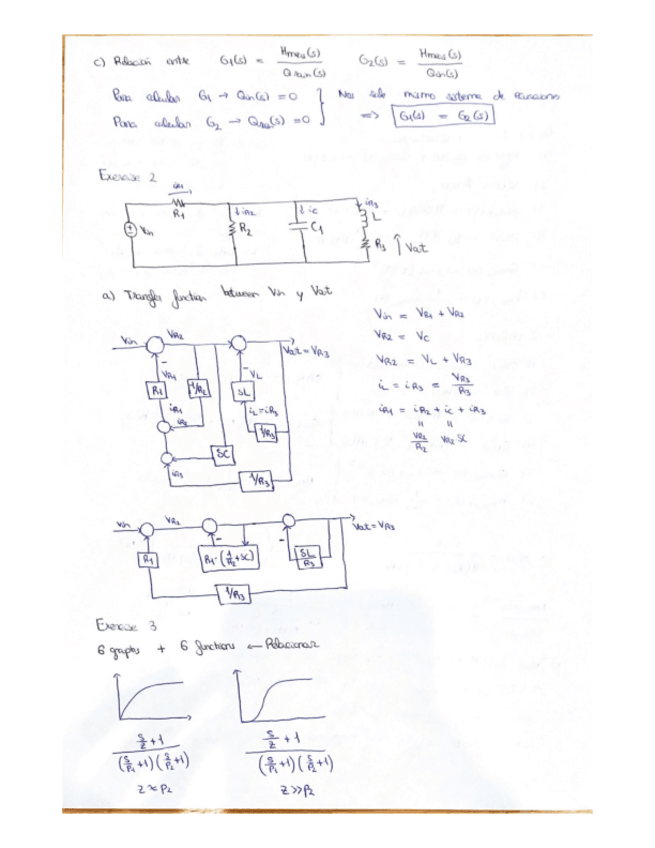 c) Relación entre G₁(s) = Hmeu(s) / Qrain(s) G₂(s) = Hmeu(s) / Qin(s)
Para calcular G₁ → Qin(s) = 0 } Nos sale mismo sistema de ecuaciones
Para calcular G₂ → (s) = 0 => G₁(s) = G₂(s)
Exercise 2
iR1
R1
Vin
iR2
R2
ic
C1
iR3
L
R3
Vat
a) Transfer function between Vin y Vat
Vin = VR1 + VR2
VR2 = Vc
VR2 = VL + VR3
iL = iR3 = VR3 / R3
iR1 = iR2 + ic + iR3
VR2 / R2
VR2 SC
Vin
VR2
Vat = VR3
-
-
VR1
VL
R1
1/R2
SL
iR1
iR2
iL = iR3
1/R3
SC
iR3
1/R3
Vin
VR2
Vat = VR3
-
-
R1
R1·(1/R2 + SC)
SL/R3
1/R3
Exercise 3
6 graphs + 6 functions ← Relacionar
(s/z + 1) / ((s/p₁ + 1)(s/p₂ + 1))
z ≈ p₂
(s/z + 1) / ((s/p₁ + 1)(s/p₂ + 1))
z >> p₂